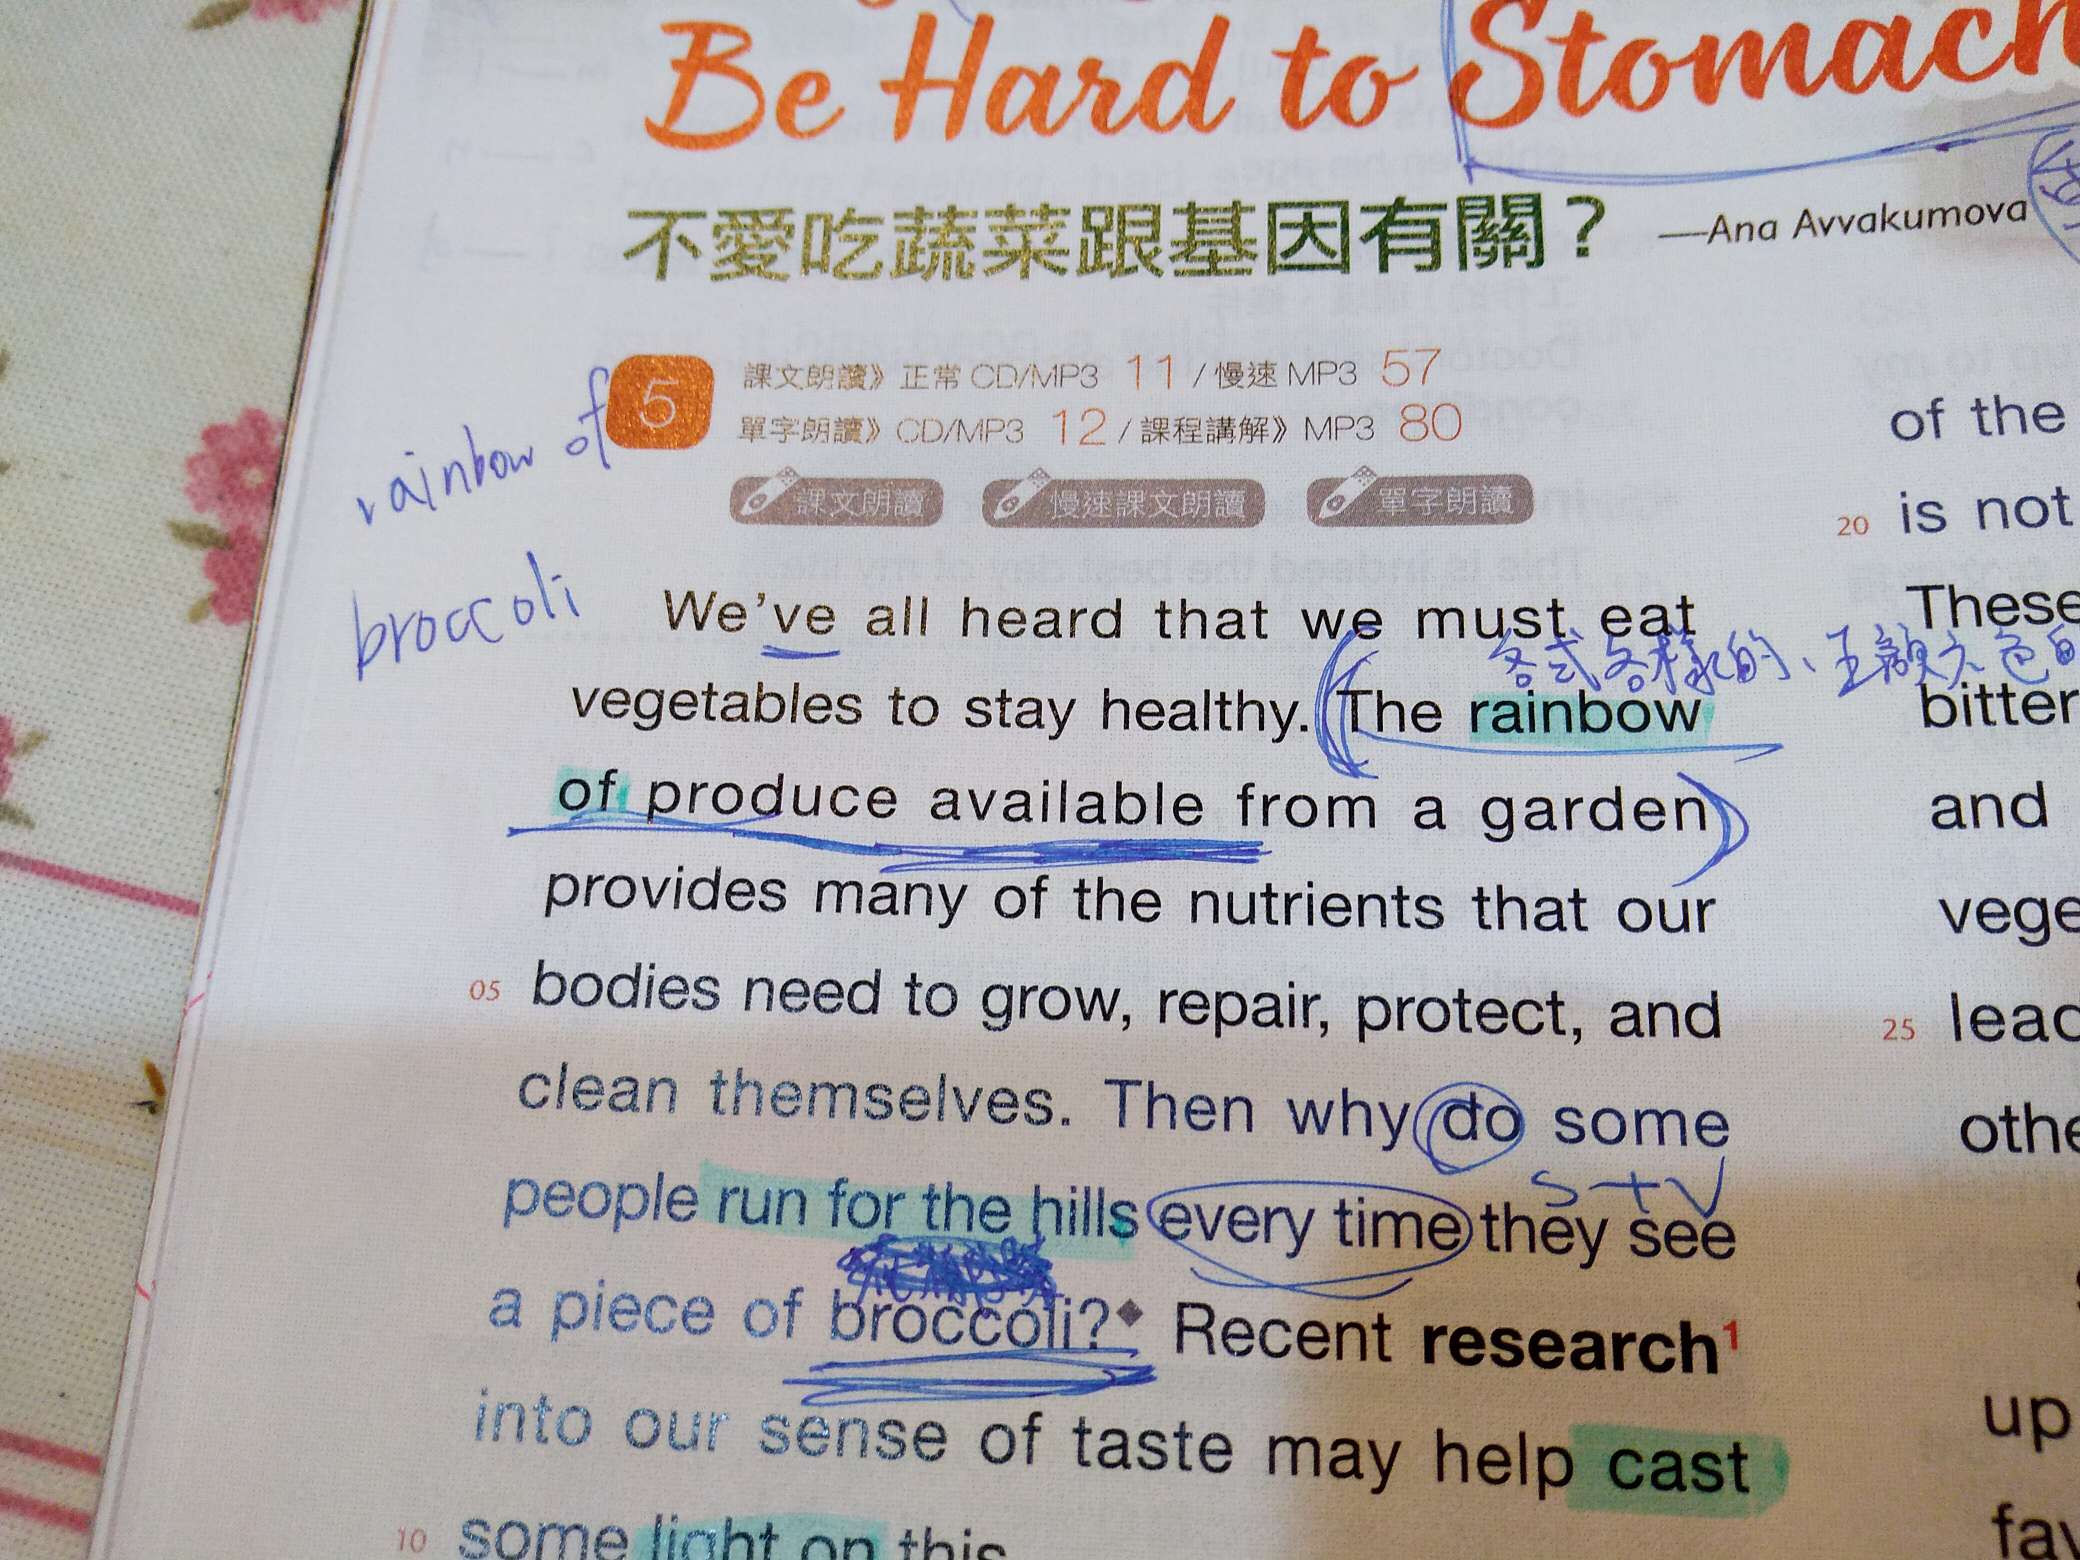 Be Hard to Stomach
不愛吃蔬菜跟基因有關？
—Ana Avvakumova
5
課文朗讀》正常 CD/MP3 11 / 慢速 MP3 57
單字朗讀》CD/MP3 12 / 課程講解》MP3 80
課文朗讀 慢速課文朗讀 單字朗讀
rainbow of
broccoli
We've all heard that we must eat
各式各樣的、五顏六色的
vegetables to stay healthy. The rainbow
of produce available from a garden
provides many of the nutrients that our
05 bodies need to grow, repair, protect, and
clean themselves. Then why do some
S+V
people run for the hills every time they see
a piece of broccoli?◆ Recent research1
into our sense of taste may help cast
10 some light on this
of the
20 is not
These
bitter
and
vege
25 lead
othe
up
fav